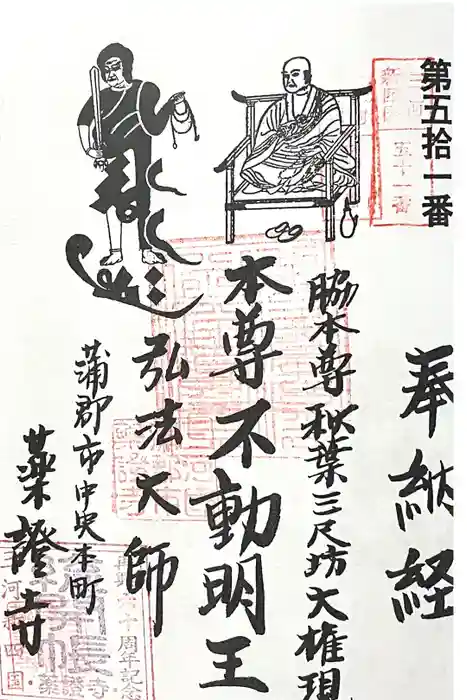 第五拾一番
奉納経
脇本尊秋葉三尺坊大権現
本尊不動明王
弘法大師
蒲郡市中央本町
薬證寺
五十一番
薬證寺